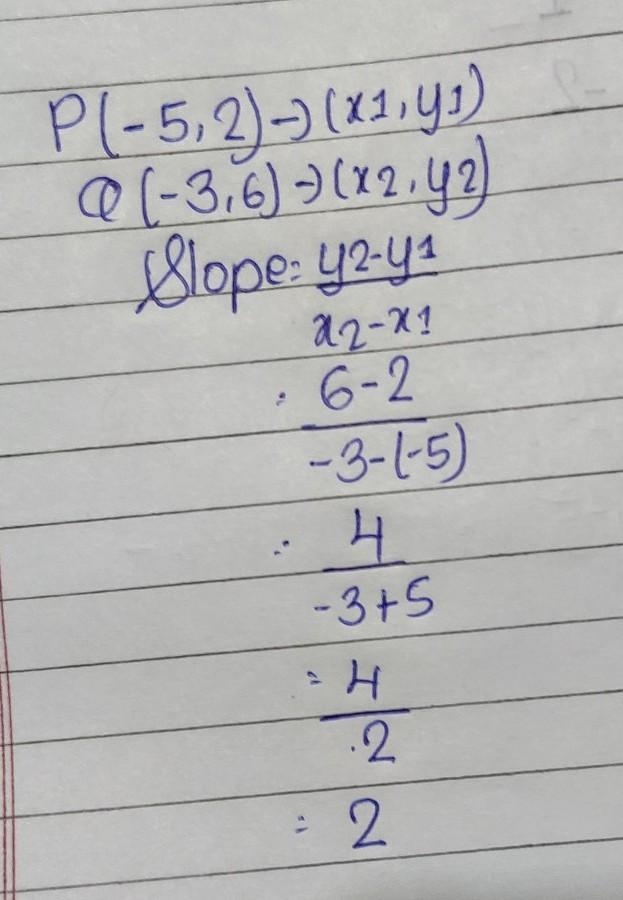 P(-5,2)→(x1,y1)
Q(-3,6)→(x2,y2)
Slope= y2-y1
x2-x1
= 6-2
-3-(-5)
= 4
-3+5
= 4
2
= 2